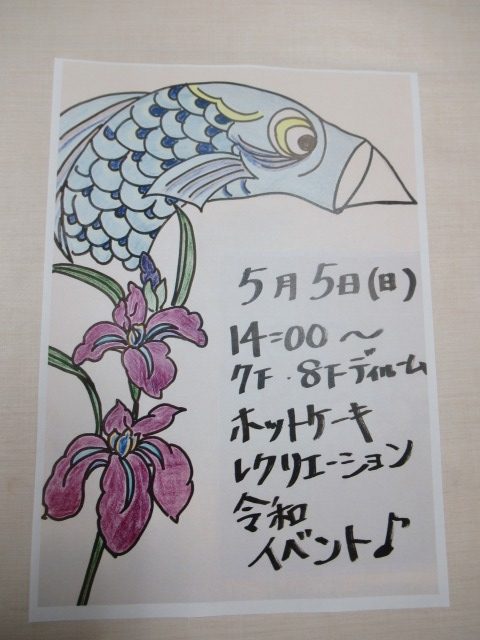 5月5日(日)
14:00〜
7F・8Fディルーム
ホットケーキ
レクリエーション
令和
イベント♪